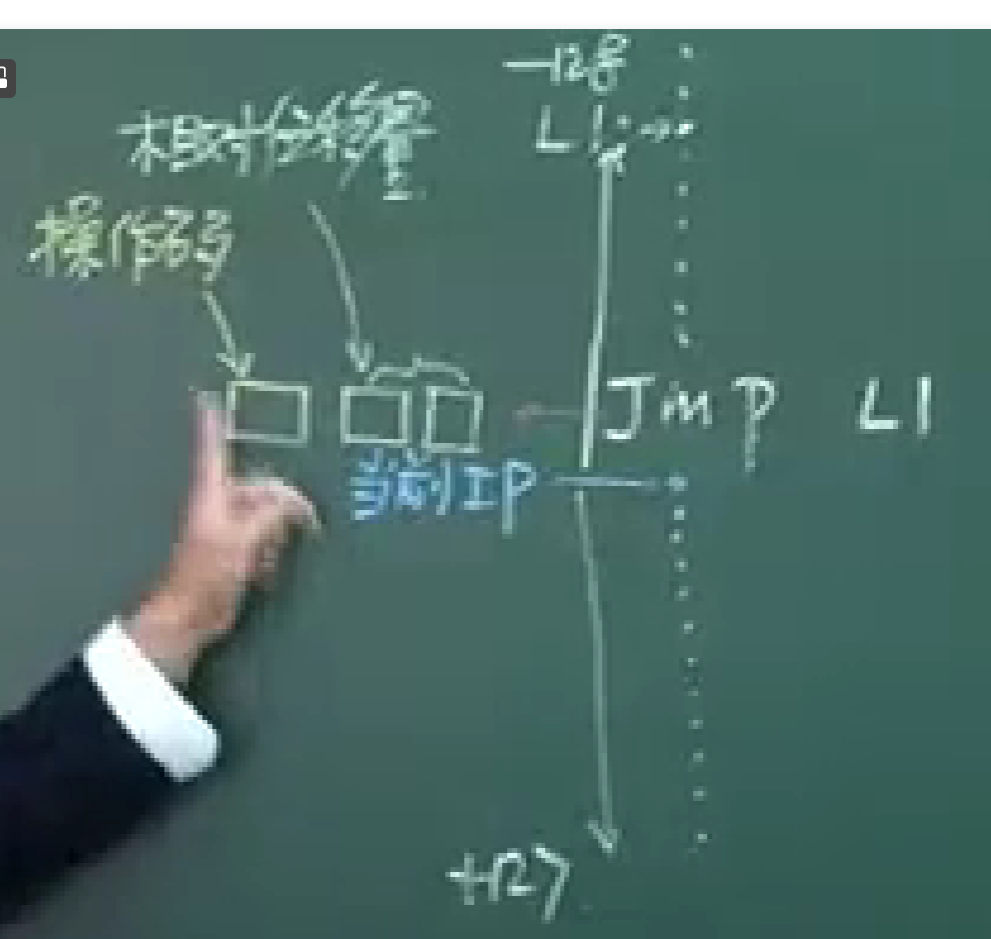 -128
L1:
相对位移量
操作码
Jmp L1
当前IP
+127